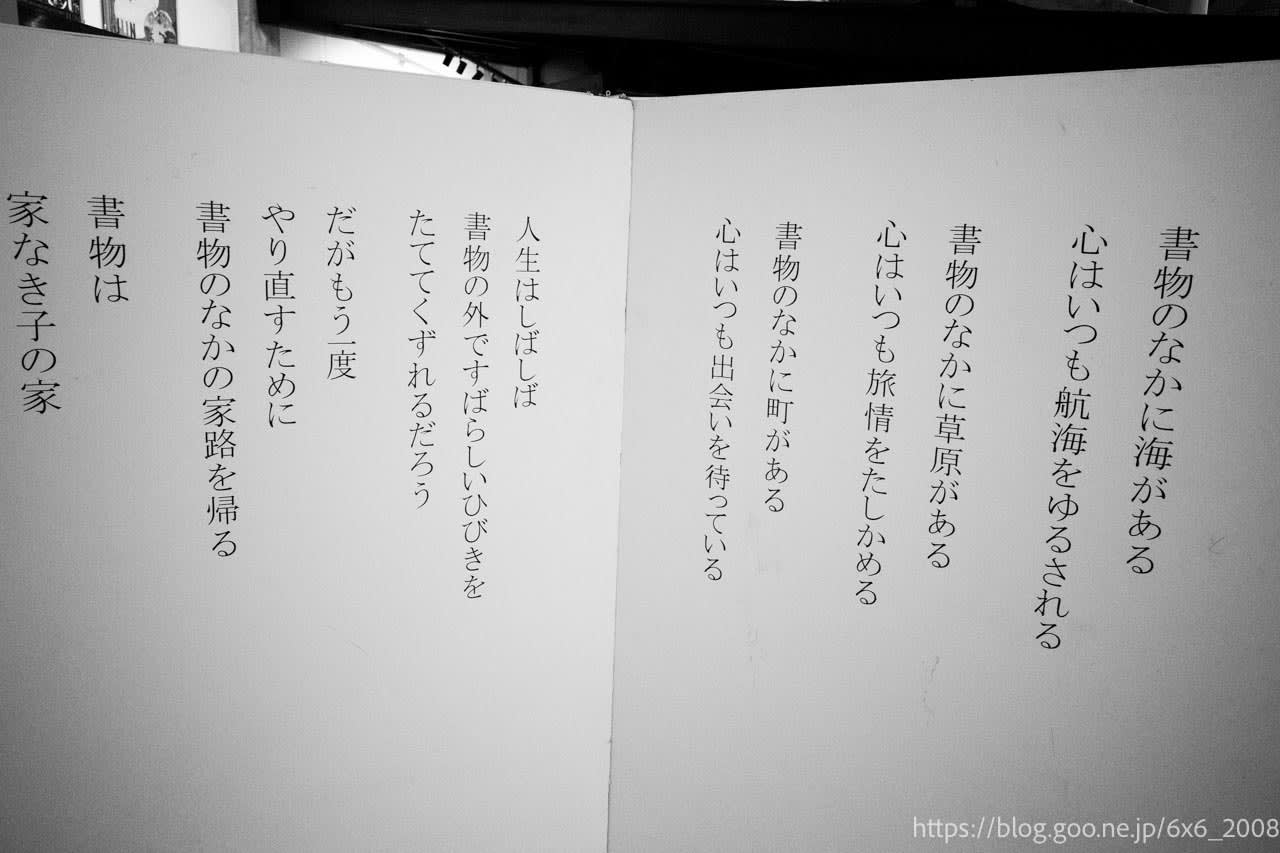 書物のなかに海がある
心はいつも航海をゆるされる
書物のなかに草原がある
心はいつも旅情をたしかめる
書物のなかに町がある
心はいつも出会いを待っている
人生はしばしば
書物の外ですばらしいひびきを
たててくずれるだろう
だがもう一度
やり直すために
書物のなかの家路を帰る
書物は
家なき子の家
https://blog.goo.ne.jp/6x6_2008